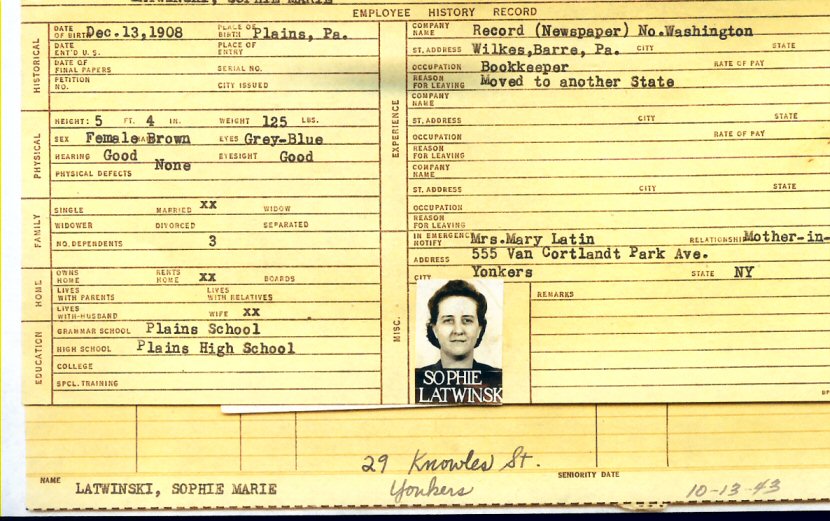 LATWINSKI, SOPHIE MARIE
EMPLOYEE HISTORY RECORD
HISTORICAL
DATE OF BIRTH Dec.13,1908 PLACE OF BIRTH Plains, Pa.
DATE ENT'D U. S. PLACE OF ENTRY
DATE OF FINAL PAPERS SERIAL NO.
PETITION NO. CITY ISSUED
PHYSICAL
HEIGHT: 5 FT. 4 IN. WEIGHT 125 LBS.
SEX Female Brown EYES Grey-Blue
HEARING Good EYESIGHT Good
PHYSICAL DEFECTS None
FAMILY
SINGLE MARRIED XX WIDOW
WIDOWER DIVORCED SEPARATED
NO. DEPENDENTS 3
HOME
OWNS HOME RENTS HOME XX BOARDS
LIVES WITH PARENTS LIVES WITH RELATIVES
LIVES WITH-HUSBAND WIFE XX
EDUCATION
GRAMMAR SCHOOL Plains School
HIGH SCHOOL Plains High School
COLLEGE
SPCL. TRAINING
EXPERIENCE
COMPANY NAME Record (Newspaper) No.Washington
ST. ADDRESS Wilkes,Barre, Pa. CITY STATE
OCCUPATION Bookkeeper RATE OF PAY
REASON FOR LEAVING Moved to another State
COMPANY NAME
ST. ADDRESS CITY STATE
OCCUPATION RATE OF PAY
REASON FOR LEAVING
COMPANY NAME
ST. ADDRESS CITY STATE
OCCUPATION
REASON FOR LEAVING
MISC.
IN EMERGENCY NOTIFY Mrs.Mary Latin RELATIONSHIP Mother-in-
ADDRESS 555 Van Cortlandt Park Ave.
CITY Yonkers STATE NY
REMARKS
SOPHIE
LATWINSK
29 Knowles St.
Yonkers
NAME LATWINSKI, SOPHIE MARIE
SENIORITY DATE
10-13-43